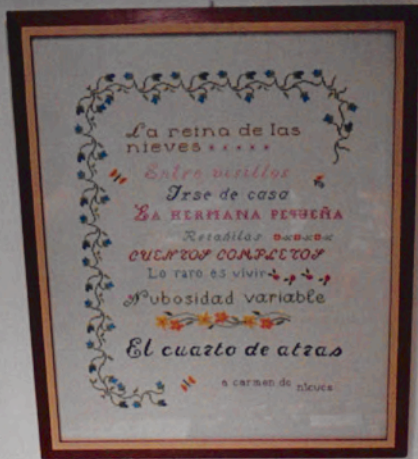 La reina de las
nieves
Entre visillos
Irse de casa
LA HERMANA PEQUEÑA
Retahilas
CUENTOS COMPLETOS
Lo raro es vivir
Nubosidad variable
El cuarto de atras
a carmen de nicuca